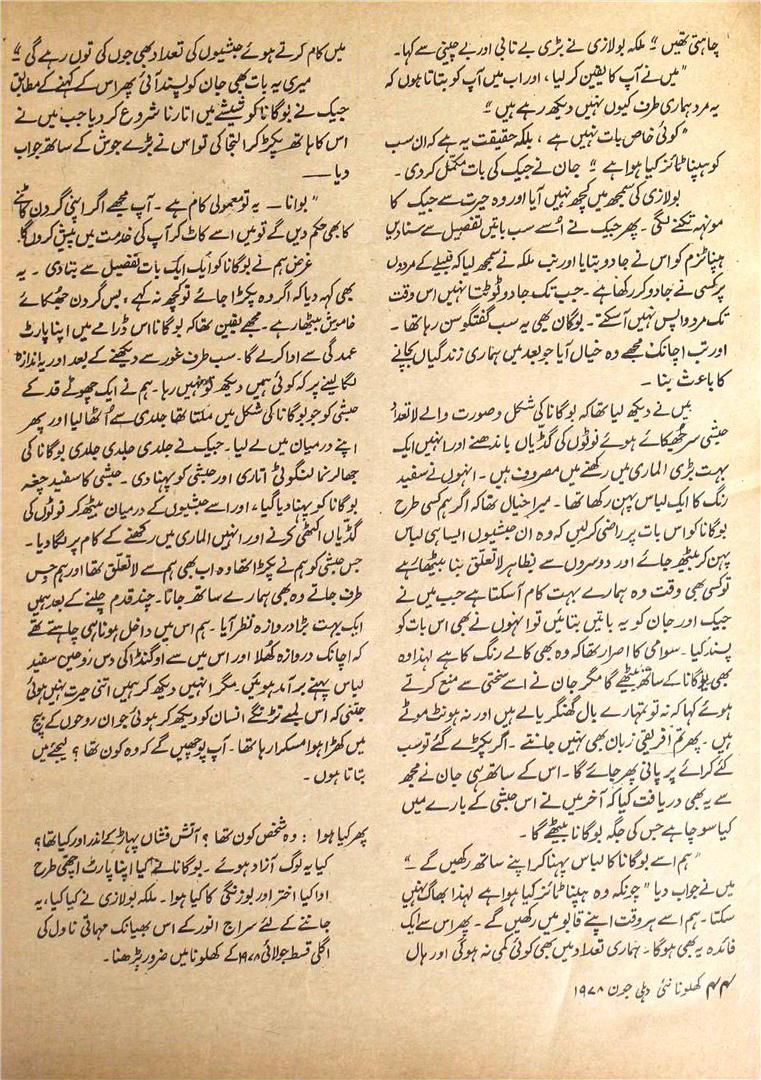 چاہتی تھیں" ملکہ بولازی نے بڑی بے تابی اور بے چینی سے کہا۔
"میں نے آپ کا یقین کر لیا، اور اب میں آپ کو بتاتا ہوں کہ
یہ مرد ہماری طرف کیوں نہیں دیکھ رہے ہیں"
"کوئی خاص بات نہیں ہے، بلکہ حقیقت یہ ہے کہ ان سب
کو ہپناٹائز کیا ہوا ہے" جان نے جیک کی بات مکمّل کر دی۔
بولازی کی سمجھ میں کچھ نہیں آیا اور وہ حیرت سے جیک کا
مونہہ تکنے لگی۔ پھر جیک نے اُسے سب باتیں تفصیل سے سنا دیں
ہپناٹزم کو اس نے جادو بتایا اور تب ملکہ نے سمجھ لیا کہ قبیلے کے مردوں
پر کسی نے جادو کر رکھا ہے۔ جب تک جادو ٹوٹتا نہیں اس وقت
تک مرد واپس نہیں آسکتے۔ بوگان بھی یہ سب گفتگو سن رہا تھا۔
اور تب اچانک مجھے وہ خیال آیا جو بعد میں ہماری زندگیاں بچانے
کا باعث بنا۔
میں نے دیکھ لیا تھا کہ بوگانا کی شکل و صورت والے لاتعداد
حبشی سر جُھکائے ہوئے نوٹوں کی گڈیاں باندھنے اور انہیں ایک
بہت بڑی الماری میں رکھنے میں مصروف ہیں۔ انہوں نے سفید
رنگ کا ایک لباس پہن رکھا تھا۔ میرا خیال تھا کہ اگر ہم کسی طرح
بوگانا کو اس بات پر راضی کر لیں کہ وہ ان حبشیوں ایسا ہی لباس
پہن کر بیٹھ جائے اور دوسروں سے بظاہر لاتعلّق بنا بیٹھا رہے
تو کسی بھی وقت وہ ہمارے بہت کام آسکتا ہے جب میں نے
جیک اور جان کو یہ باتیں بتائیں تو انہوں نے بھی اس بات کو
پسند کیا۔ سوامی کا اصرار تھا کہ وہ بھی کالے رنگ کا ہے لہذا وہ
بھی بوگانا کے ساتھ بیٹھے گا مگر جان نے اسے سختی سے منع کرتے
ہوئے کہا کہ نہ تو تمہارے بال گھنگریالے ہیں اور نہ ہونٹ موٹے
ہیں۔ پھر تم افریقی زبان بھی نہیں جانتے۔ اگر پکڑے گئے تو سب
کئے کرائے پر پانی پھر جائے گا۔ اس کے ساتھ ہی جان نے مجھ
سے یہ بھی دریافت کیا کہ آخر میں نے اس حبشی کے بارے میں
کیا سوچا ہے جس کی جگہ بوگانا بیٹھے گا۔
"ہم اسے بوگانا کا لباس پہنا کر اپنے ساتھ رکھیں گے۔"
میں نے جواب دیا "چونکہ وہ ہپناٹائز کیا ہوا ہے لہذا بھاگ نہیں
سکتا۔ ہم اسے ہر وقت اپنے قابو میں رکھیں گے۔ پھر اس سے ایک
فائدہ یہ بھی ہوگا۔ ہماری تعداد میں بھی کوئی کمی نہ ہوگی اور ہال
میں کام کرتے ہوئے حبشیوں کی تعداد بھی جوں کی توں رہے گی"
میری یہ بات بھی جان کو پسند آئی پھر اس کے کہنے کے مطابق
جیک نے بوگانا کو شیشے میں اتارنا شروع کر دیا جب میں نے
اس کا ہاتھ پکڑ کر التجا کی تو اس نے بڑے جوش کے ساتھ جواب
دیا —
"بوانا — یہ تو معمولی کام ہے۔ آپ مجھے اگر اپنی گردن کاٹنے
کا بھی حکم دیں گے تو میں اسے کاٹ کر آپ کی خدمت میں پیش کروں گا۔
غرض ہم نے بوگانا کو ایک ایک بات تفصیل سے بتا دی۔ یہ
بھی کہہ دیا کہ اگر وہ پکڑا جائے تو کچھ نہ کہے، بس گردن جھکائے
خاموش بیٹھا رہے۔ مجھے یقین تھا کہ بوگانا اس ڈرامے میں اپنا پارٹ
عمدگی سے ادا کرے گا۔ سب طرف غور سے دیکھنے کے بعد اور یہ اندازہ
لگا لینے پر کہ کوئی ہمیں دیکھ تو نہیں رہا۔ ہم نے ایک چھوٹے قد کے
حبشی کو جو بوگانا کی شکل میں ملتا تھا جلدی سے اُٹھا لیا اور پھر
اپنے درمیان میں لے لیا۔ جیک نے جلدی جلدی جلدی بوگانا کی
جھالر نما لنگوٹی اتاری اور حبشی کو پہنا دی۔ حبشی کا سفید چغہ
بوگانا کو پہنا دیا گیا، اور اسے حبشیوں کے درمیان بیٹھ کر نوٹوں کی
گڈیاں اکٹھی کرنے اور انہیں الماری میں رکھنے کے کام پر لگا دیا۔
جس حبشی کو ہم نے پکڑا تھا وہ اب بھی ہم سے لاتعلّق تھا اور ہم جس
طرف جاتے وہ بھی ہمارے ساتھ جاتا۔ چند قدم چلنے کے بعد ہمیں
ایک بہت بڑا دروازہ نظر آیا۔ ہم اس میں داخل ہونا ہی چاہتے تھے
کہ اچانک دروازہ کھلا اور اس میں سے اوگنڈا کی دس روحیں سفید
لباس پہنے برآمد ہوئیں۔ مگر انہیں دیکھ کر ہمیں اتنی حیرت نہیں ہوئی
جتنی کہ اس لمبے تڑنگے انسان کو دیکھ کر ہوئی جو ان روحوں کے بیچ
میں کھڑا ہوا مسکرا رہا تھا۔ آپ پوچھیں گے کہ وہ کون تھا؟ لیجئے میں
بتاتا ہوں۔
پھر کیا ہوا : وہ شخص کون تھا؟ آتش فشاں پہاڑ کے اندر اور کیا تھا؟
کیا یہ لوگ آزاد ہوئے۔ بوگانا نے کیا اپنا پارٹ اچھی طرح
ادا کیا اختر اور بوزنگی کا کیا ہوا۔ ملکہ بولازی نے کیا کیا، یہ
جاننے کے لئے سراج انور کے اس بھیانک مہماتی ناول کی
اگلی قسط جولائی ۱۹۷۸ کے کھلونا میں ضرور پڑھنا۔
۴۴ کھلونا نئی دہلی جون ۱۹۷۸